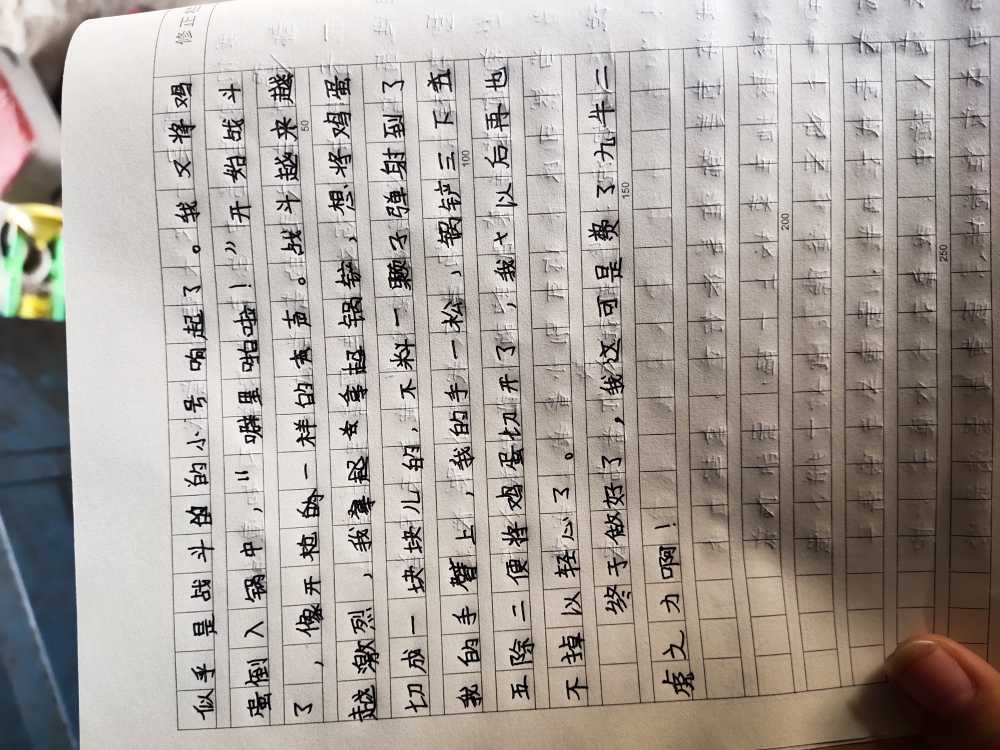 似乎是战斗的的小号响起了。我又将鸡
蛋倒入锅中，“噼里啪啦！”开始战斗
了，像开枪的一样的声声。战斗越来越
越激烈，我拿起拿起锅铲，想将鸡蛋
切成一块块儿的，不料一颗子弹射到了
我的手臂上，我的手一松，锅铲三下五
五除二便将鸡蛋切开了，我以后再也
不掉以轻心了。
终于做好了，我这可是费了九牛二
虎之力啊！
50
100
150
200
250
修正